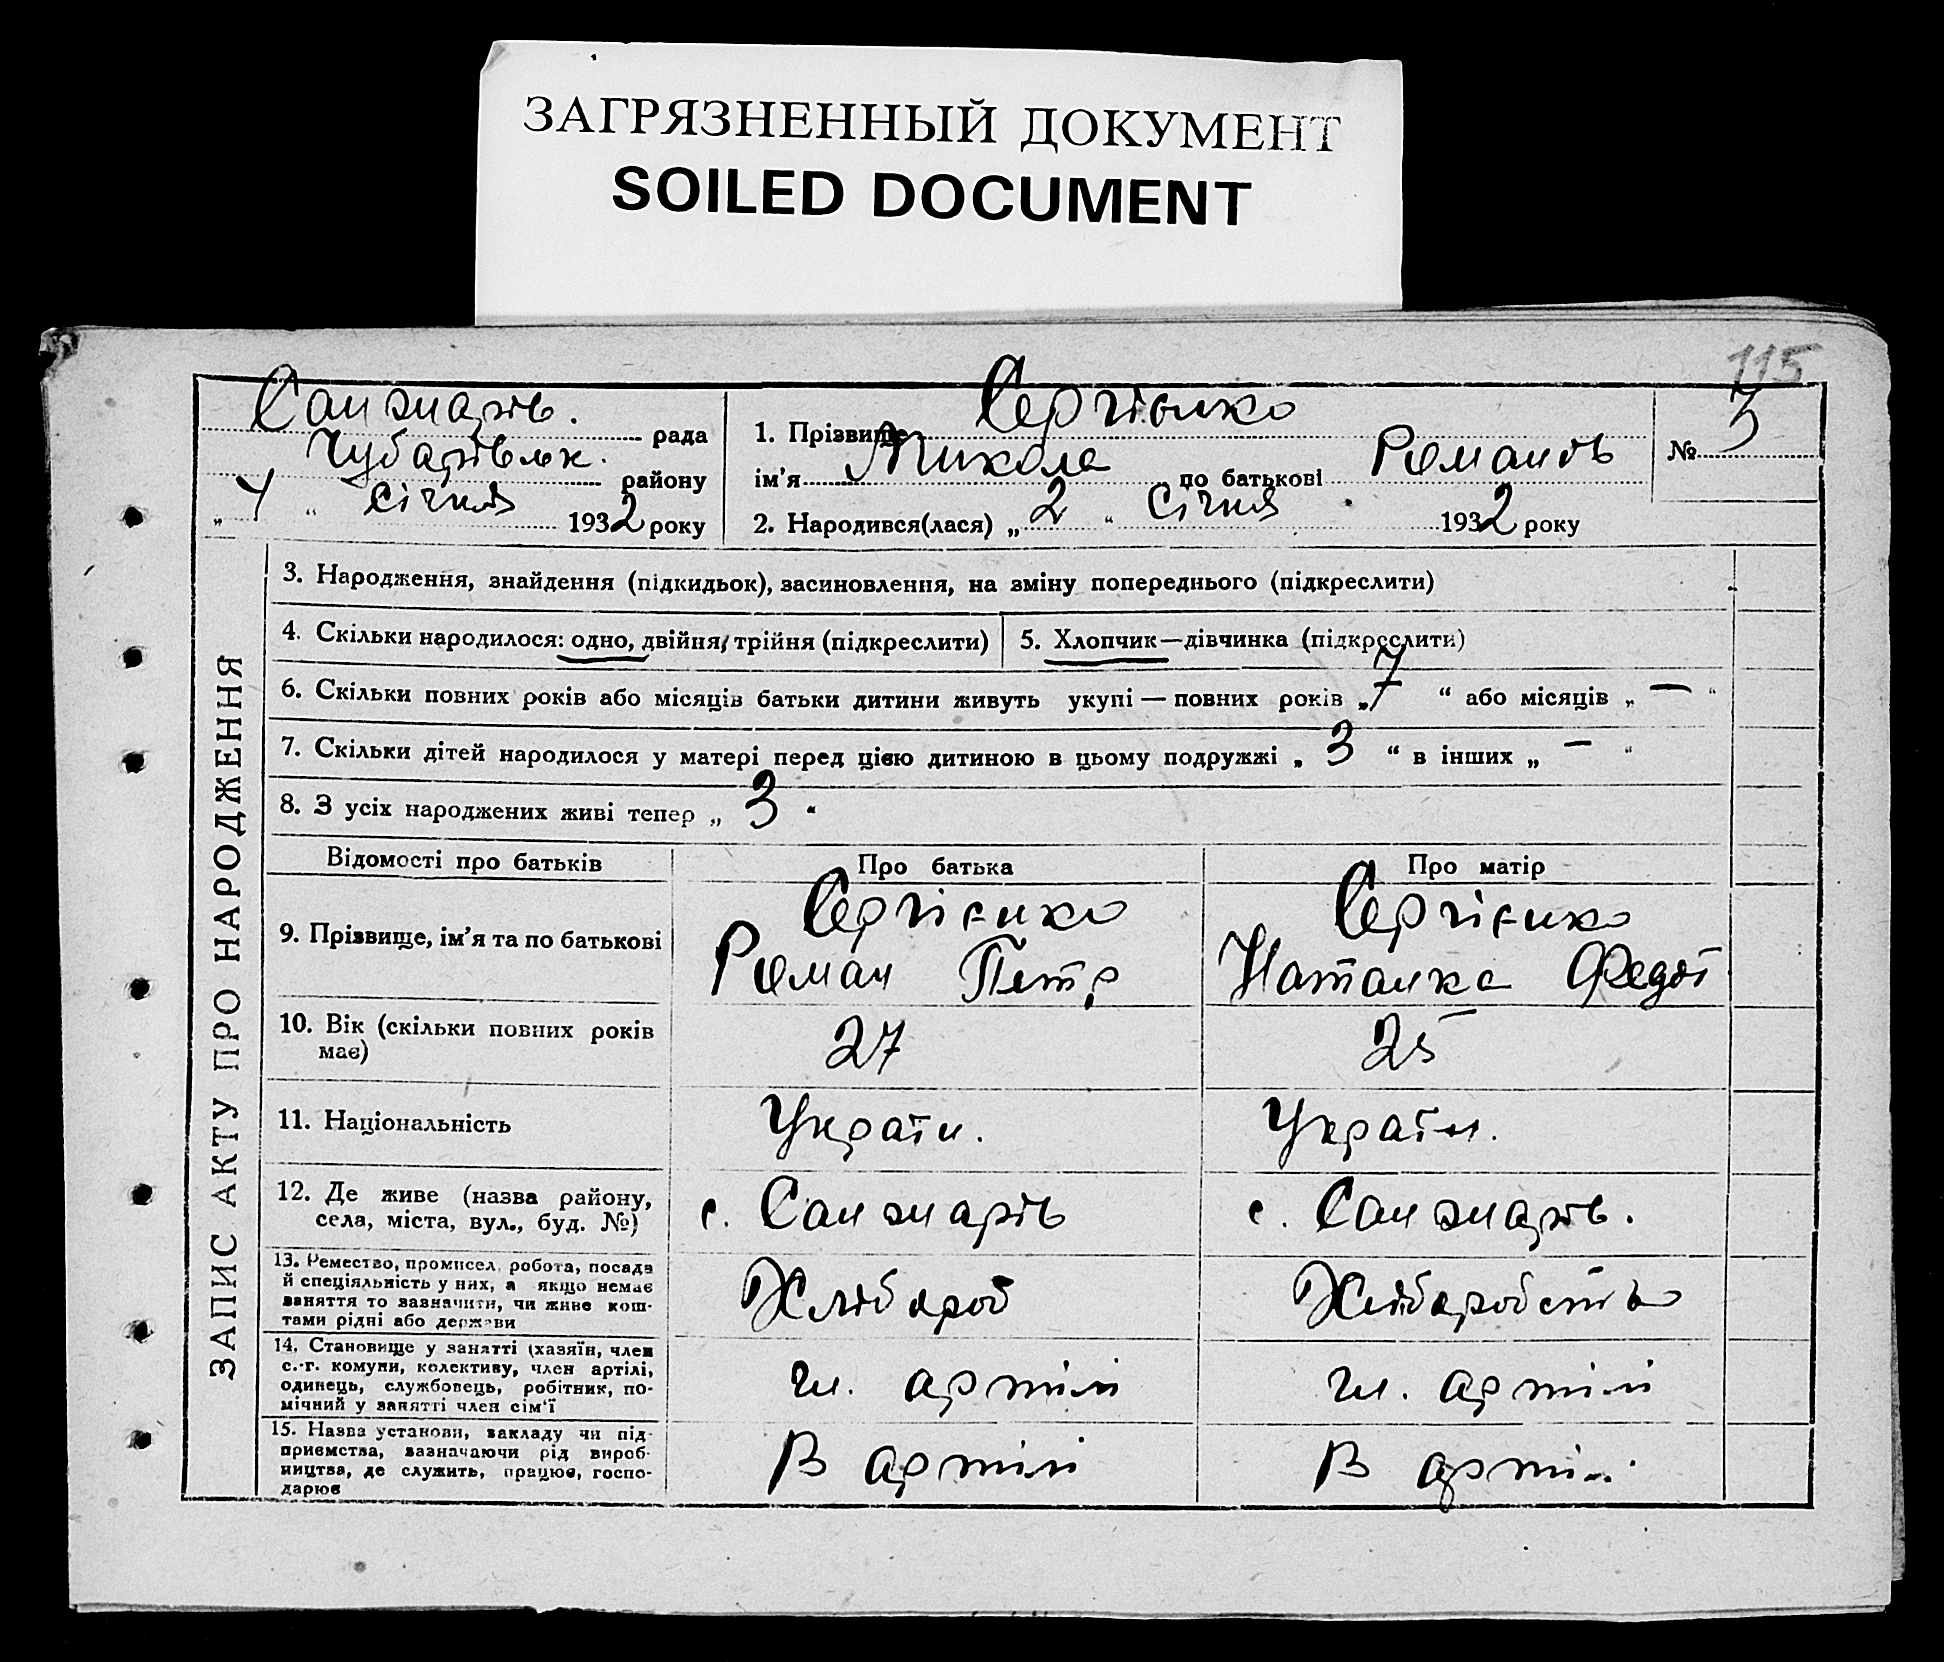 ЗАГРЯЗНЕННЫЙ ДОКУМЕНТ
SOILED DOCUMENT
115
Санжарів. рада
Чубарівськ. району
„ 4 “ січня 1932 року
1. Прізвище Сергієнко
ім'я Микола по батькові Романов
2. Народився(лася) „ 2 “ Січня 1932 року
№ 3
ЗАПИС АКТУ ПРО НАРОДЖЕННЯ
3. Народження, знайдення (підкидьок), засиновлення, на зміну попереднього (підкреслити)
4. Скільки народилося: одно, двійня, трійня (підкреслити)
5. Хлопчик—дівчинка (підкреслити)
6. Скільки повних років або місяців батьки дитини живуть укупі — повних років „ 7 “ або місяців „ — “
7. Скільки дітей народилося у матері перед цією дитиною в цьому подружжі „ 3 “ в інших „ — “
8. З усіх народжених живі тепер „ 3 “
Відомості про батьків
Про батька
Про матір
9. Прізвище, ім'я та по батькові
Сергієнко
Роман Петр
Сергієнко
Наталка Федот
10. Вік (скільки повних років
має)
27
25
11. Національність
Україн.
Україн.
12. Де живе (назва району,
села, міста, вул., буд. №)
с. Санжарів
с. Санжарів.
13. Ремество, промисел, робота, посада
й спеціяльність у них, а якщо немає
заняття то зазначити, чи живе кош-
тами рідні або держави
Хлібороб
Хліборобство
14. Становище у занятті (хазяїн, член
с.-г. комуни, колективу, член артілі,
одинець, службовець, робітник, по-
мічний у занятті член сім'ї
чл. артілі
чл. артілі
15. Назва установи, закладу чи під-
приємства, зазначаючи рід вироб-
ництва, де служить, працює, госпо-
дарює
В артілі
В артілі